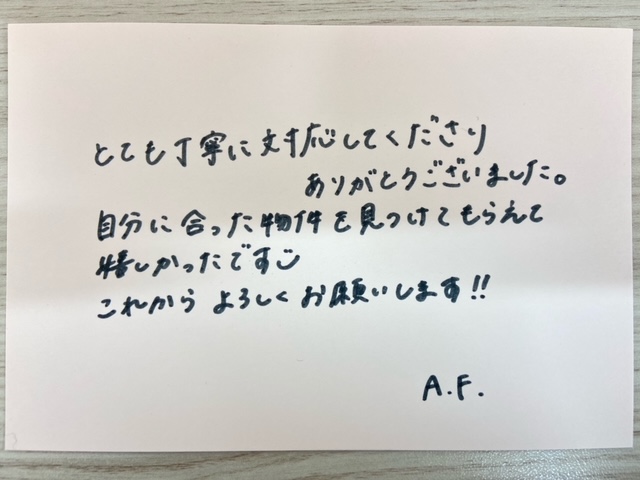 とても丁寧に対応してくださり
ありがとうございました。
自分に合った物件を見つけてもらえて
嬉しかったです
これから よろしくお願いします!!
A.F.